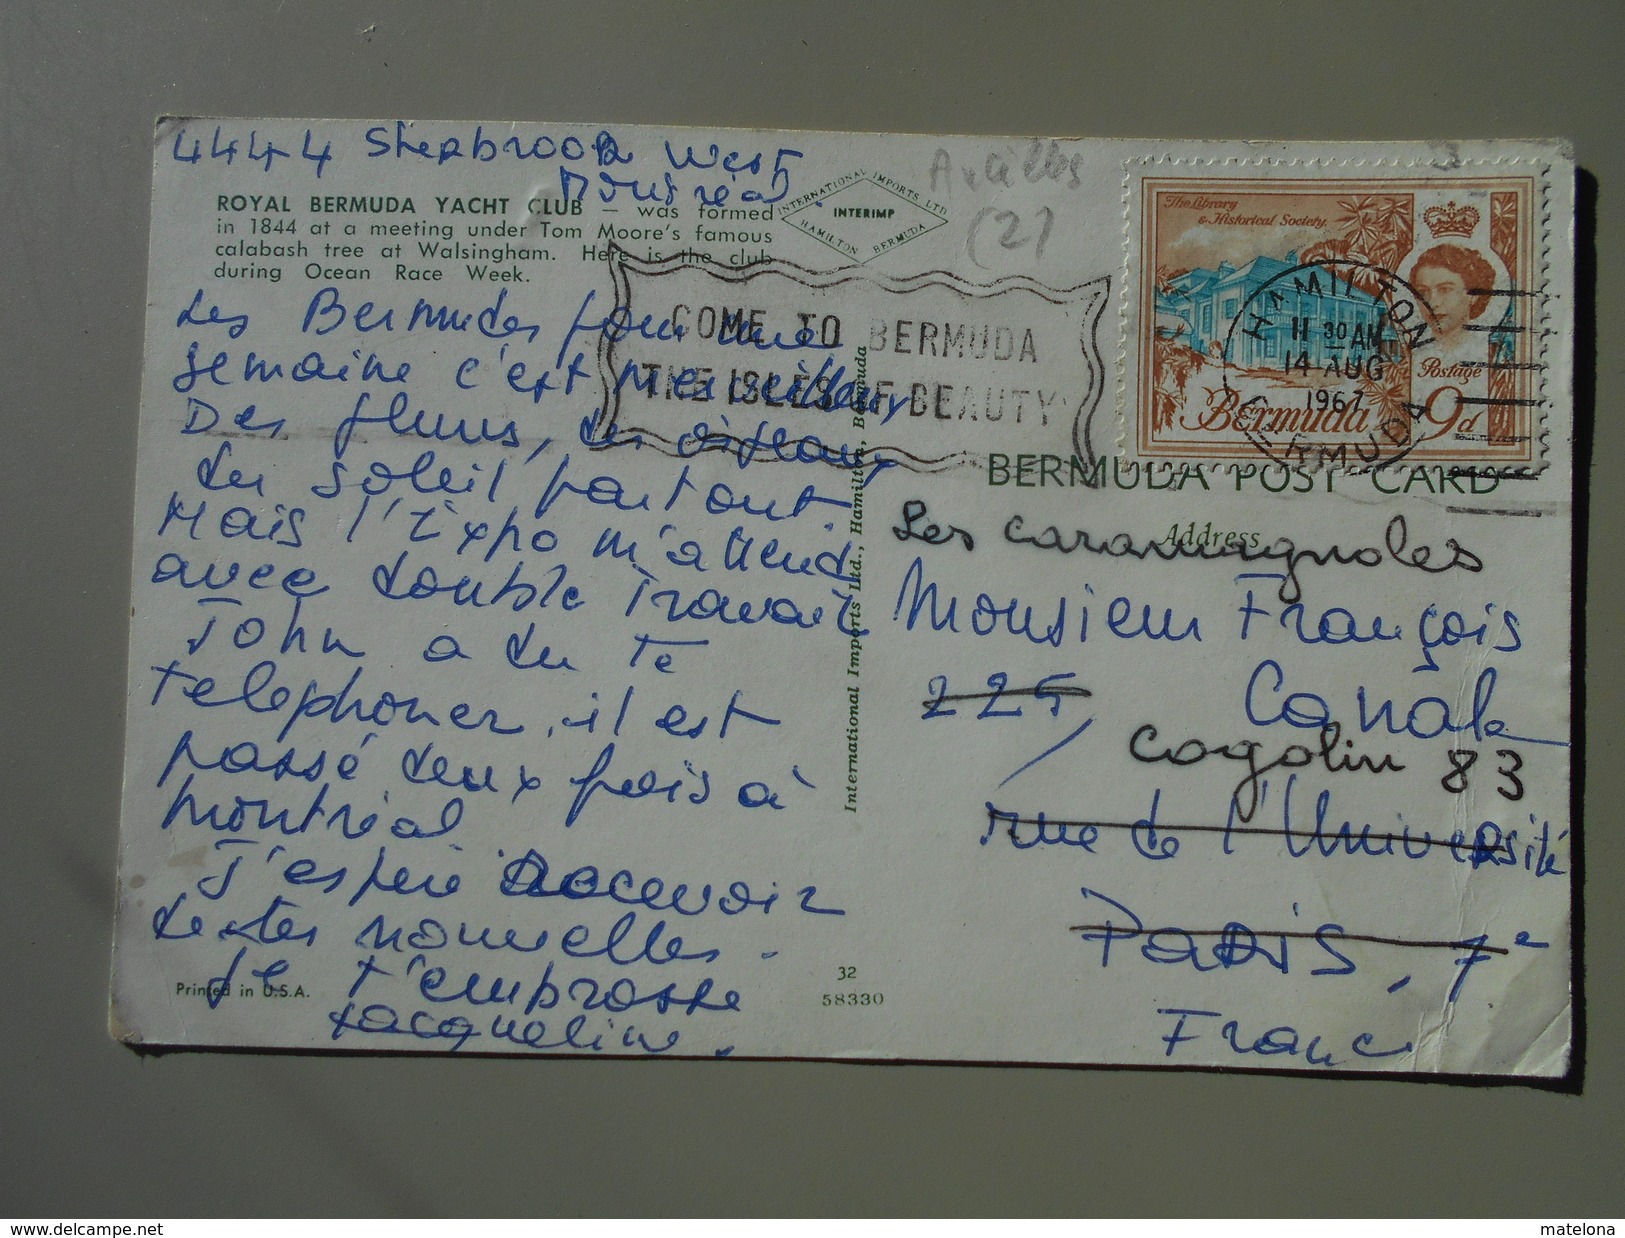 4444 Sherbrooke West
Montréal.
ROYAL BERMUDA YACHT CLUB — was formed
in 1844 at a meeting under Tom Moore's famous
calabash tree at Walsingham. Here is the club
during Ocean Race Week.
INTERNATIONAL IMPORTS LTD
INTERIMP
HAMILTON BERMUDA
Antilles
(2)
COME TO BERMUDA
THE ISLES OF BEAUTY
The Library
& Historical Society.
Postage
Bermuda 9d
HAMILTON
11 30 AM
14 AUG
1967
BERMUDA
Les Bermudes pour une
semaine c'est merveilleux
Des fleurs, des oiseaux
du soleil partout.
Mais l'Expo m'attend
avec double travail
John a du te
telephoner, il est
passé deux fois à
Montréal
J'espère recevoir
de tes nouvelles.
Je t'embrasse
Jacqueline.
Printed in U.S.A.
32
58330
International Imports Ltd., Hamilton, Bermuda
BERMUDA POST CARD
Address
Les caramagnoles
Monsieur François
225 Canale
Cogolin 83
rue de l'Université
Paris, 7e
France
delcampe.net
matelona